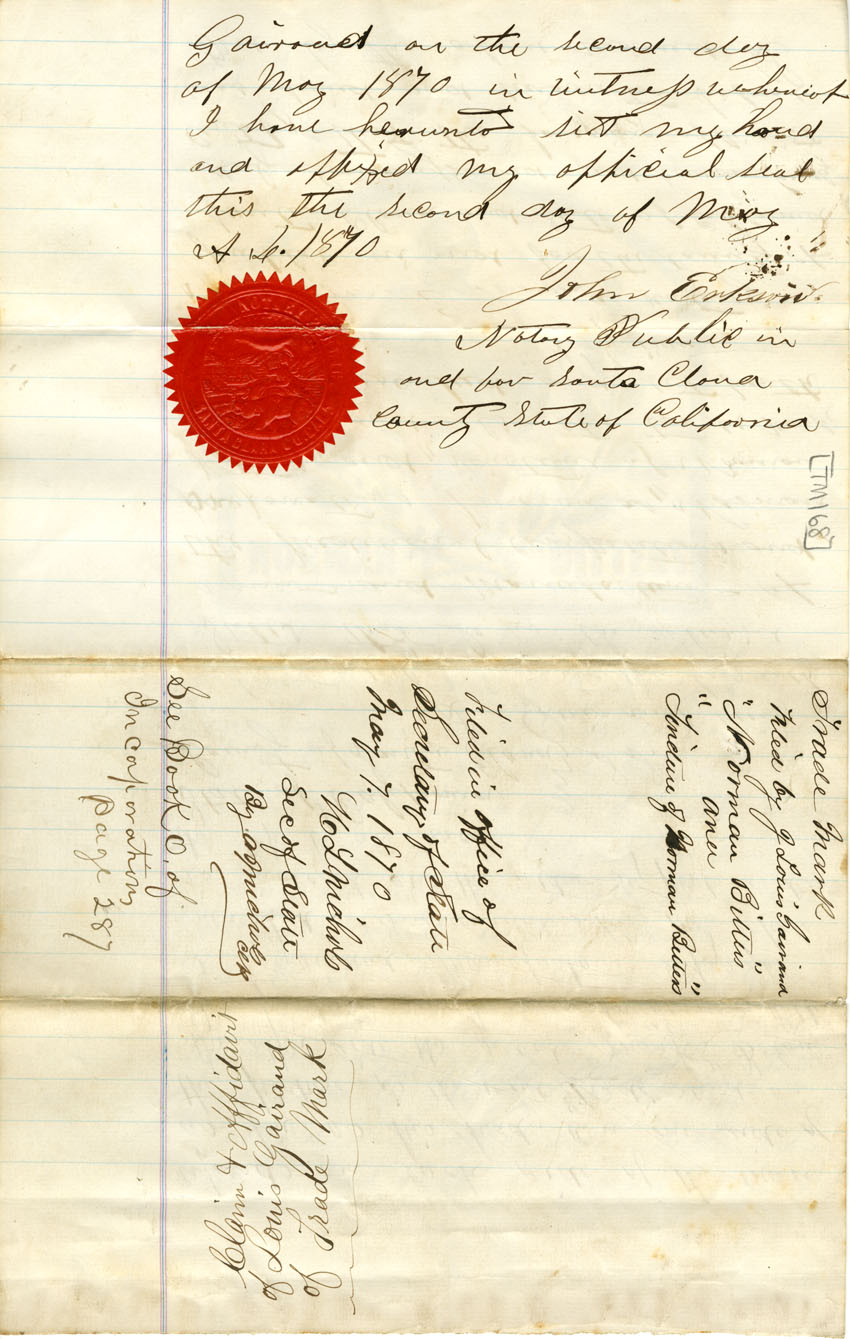 Gairaud on the second day
of May 1870 in witness whereof
I have hereunto set my hand
and affixed my official seal
this the second day of May
A D. 1870
John Erkson.
Notary Public in
and for Santa Clara
County State of California
NOTARY
[TM168]
Trade Mark
Filed by J Louis Gairaud
"Norman Bitters"
and
"Tincture of Norman Bitters"
Filed in Office of
Secretary of State
May 7. 1870
H L Nichols
Sec of State
By Nichols
See Book O. of
Incoporations
page 287
Claim & Affidavit
of Louis Gairaud
of Trade Mark